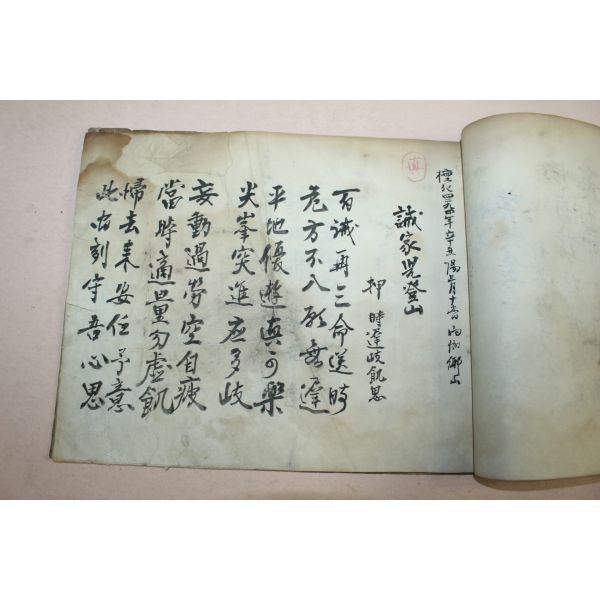 檀紀四二九四年辛丑陽三月十五日 內城鄉山
誠家兒登山
押 時遲岐飢思
百誡再三命送時
危方不入亂無遲
平地優遊真可樂
尖峯突進庶多岐
妄動過勞空自疲
當時適量勿虛飢
歸去來安任予意
此右刻守吾心思